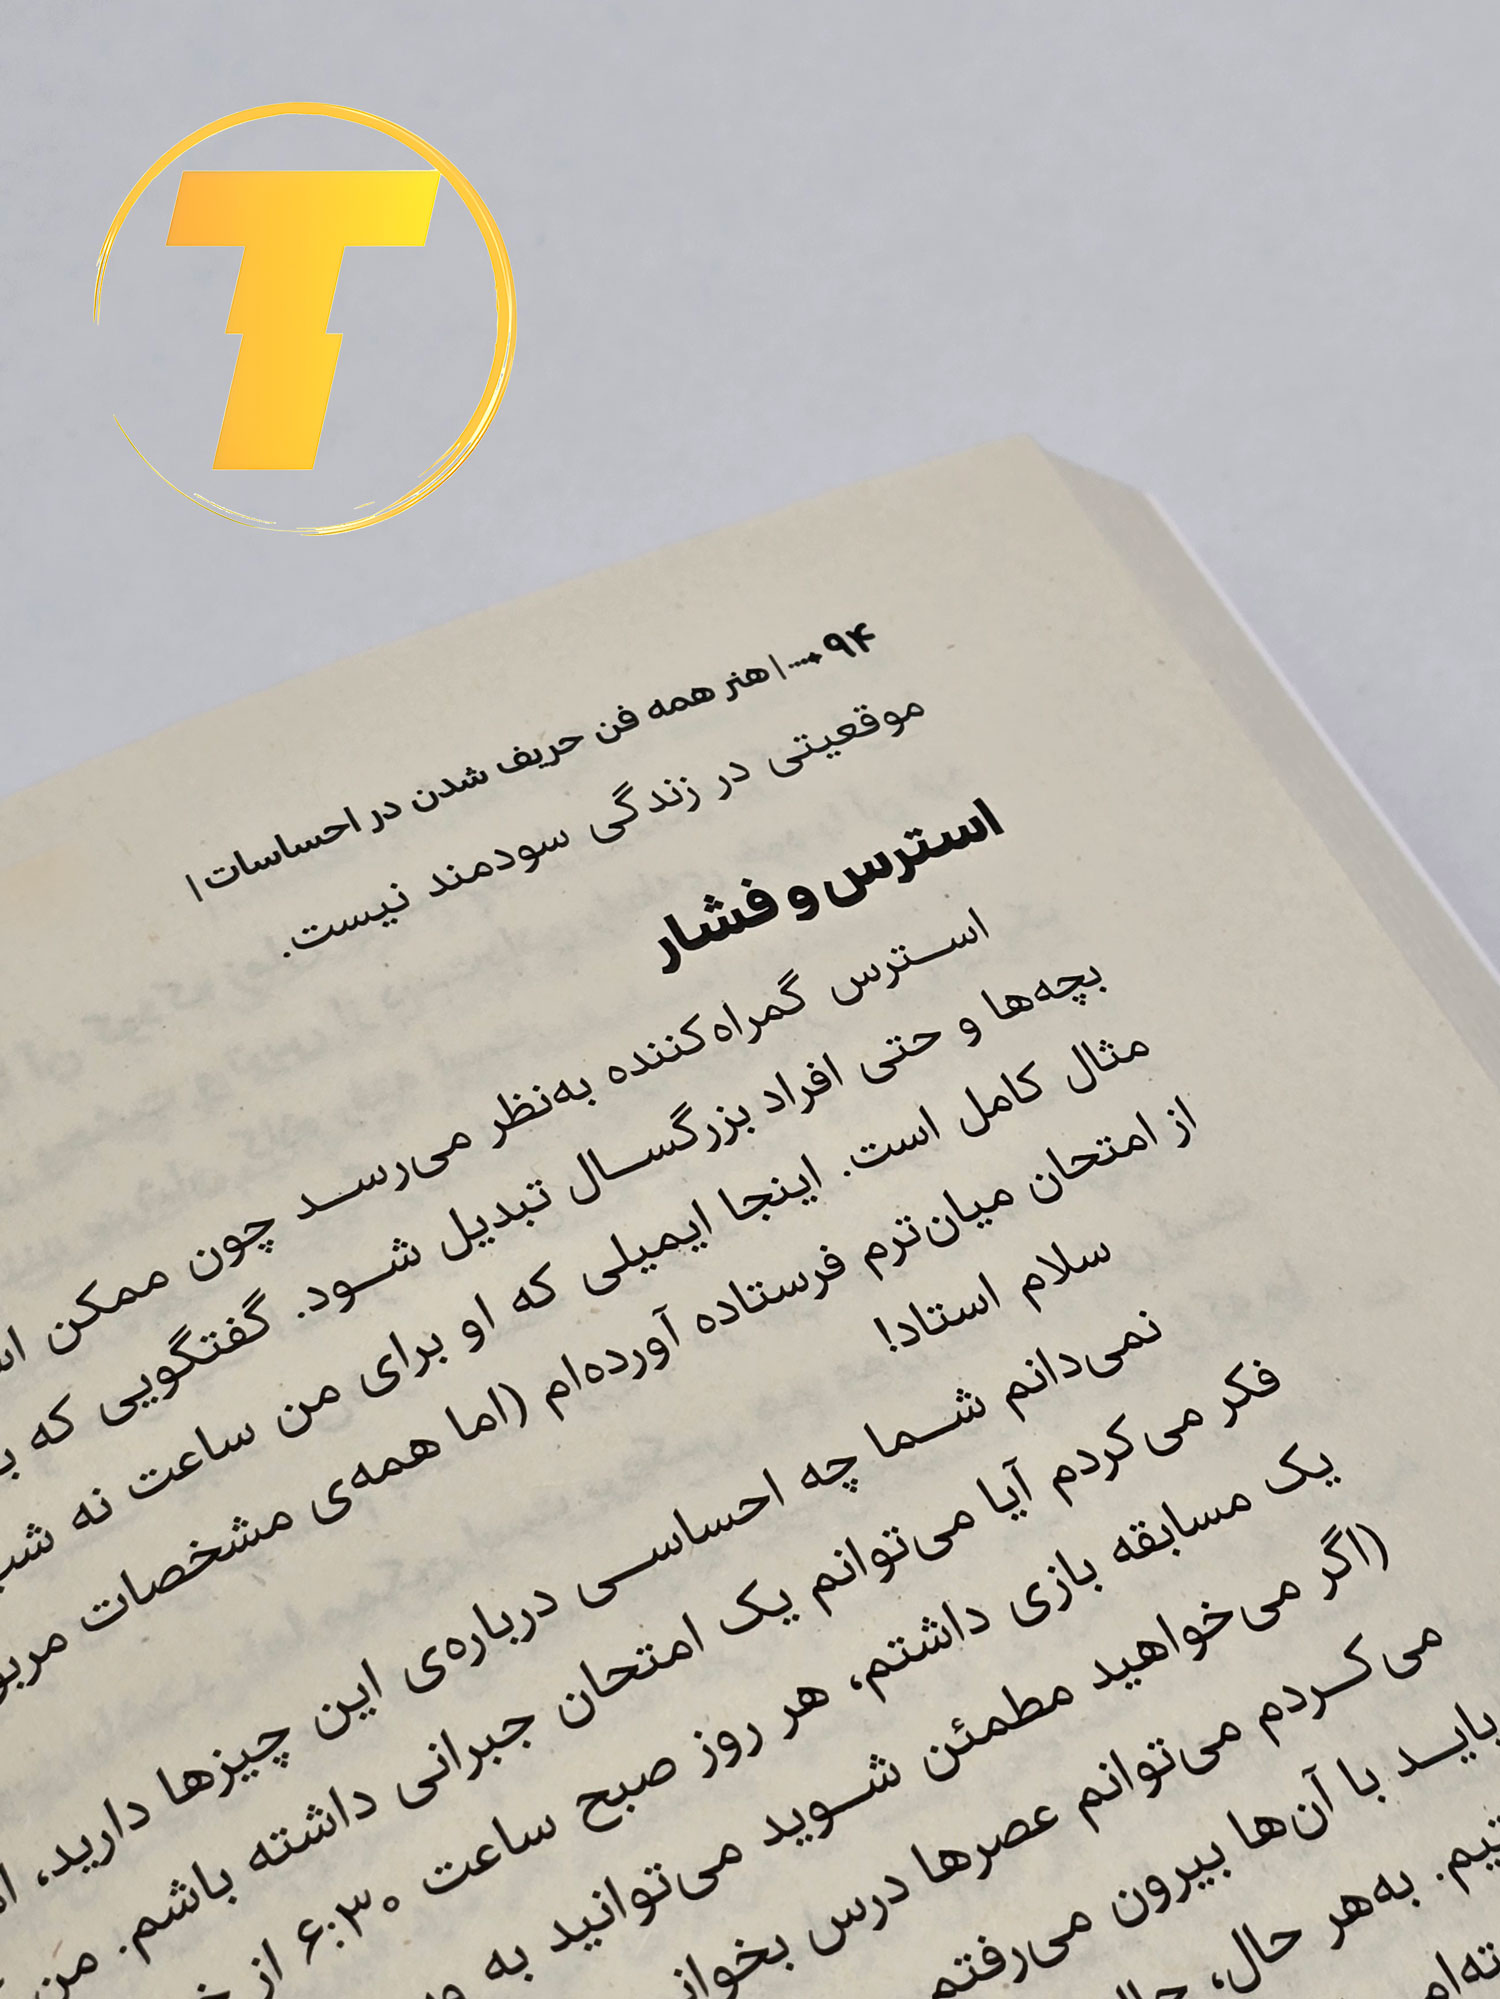 T
۹۴ | هنر همه فن حریف شدن در احساسات |
موقعیتی در زندگی سودمند نیست.
استرس و فشار
استرس گمراه‌کننده به‌نظر می‌رسد چون ممکن
بچه‌ها و حتی افراد بزرگسال تبدیل شود. گفتگویی که
مثال کامل است. اینجا ایمیلی که او برای من ساعت نه
از امتحان میان‌ترم فرستاده آورده‌ام (اما همه‌ی مشخصات
سلام استاد!
نمی‌دانم شما چه احساسی درباره‌ی این چیزها دارید،
فکر می‌کردم آیا می‌توانم یک امتحان جبرانی داشته باشم. من
یک مسابقه بازی داشتم، هر روز صبح ساعت ۶:۳۰ از
(اگر می‌خواهید مطمئن شوید می‌توانید به
می‌کردم می‌توانم عصرها درس
باید با آن‌ها بیرون می‌رفتم
به‌هر حال،